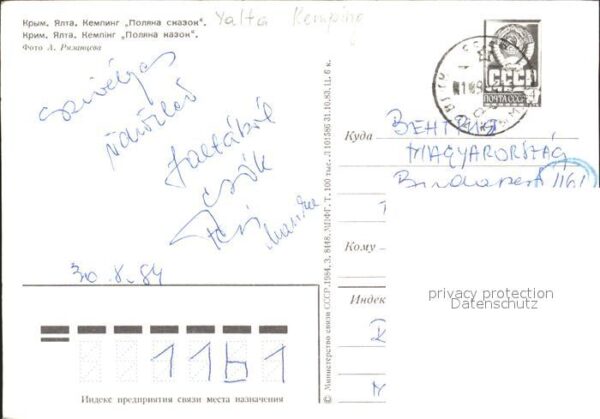 Крым, Ялта, Кемпинг „Поляна сказок".
Крим, Ялта, Кемпінг „Поляна казок".
Фото А. Рязанцева
Yalta Kemping
Szívélyes
üdvözlet
Jaltából
Csók
30.8.84
© Министерство связи СССР. 1984. З. 8448. МПФГ. Т. 100 тыс. Л 101586 31.10.83. Ц. 6 к.
СССР
ПОЧТА СССР
Куда
ВЕНГРИЯ
MAGYARORSZÁG
Budapest 1161
Кому
Индекс
privacy protection
Datenschutz
1161
Индекс предприятия связи места назначения